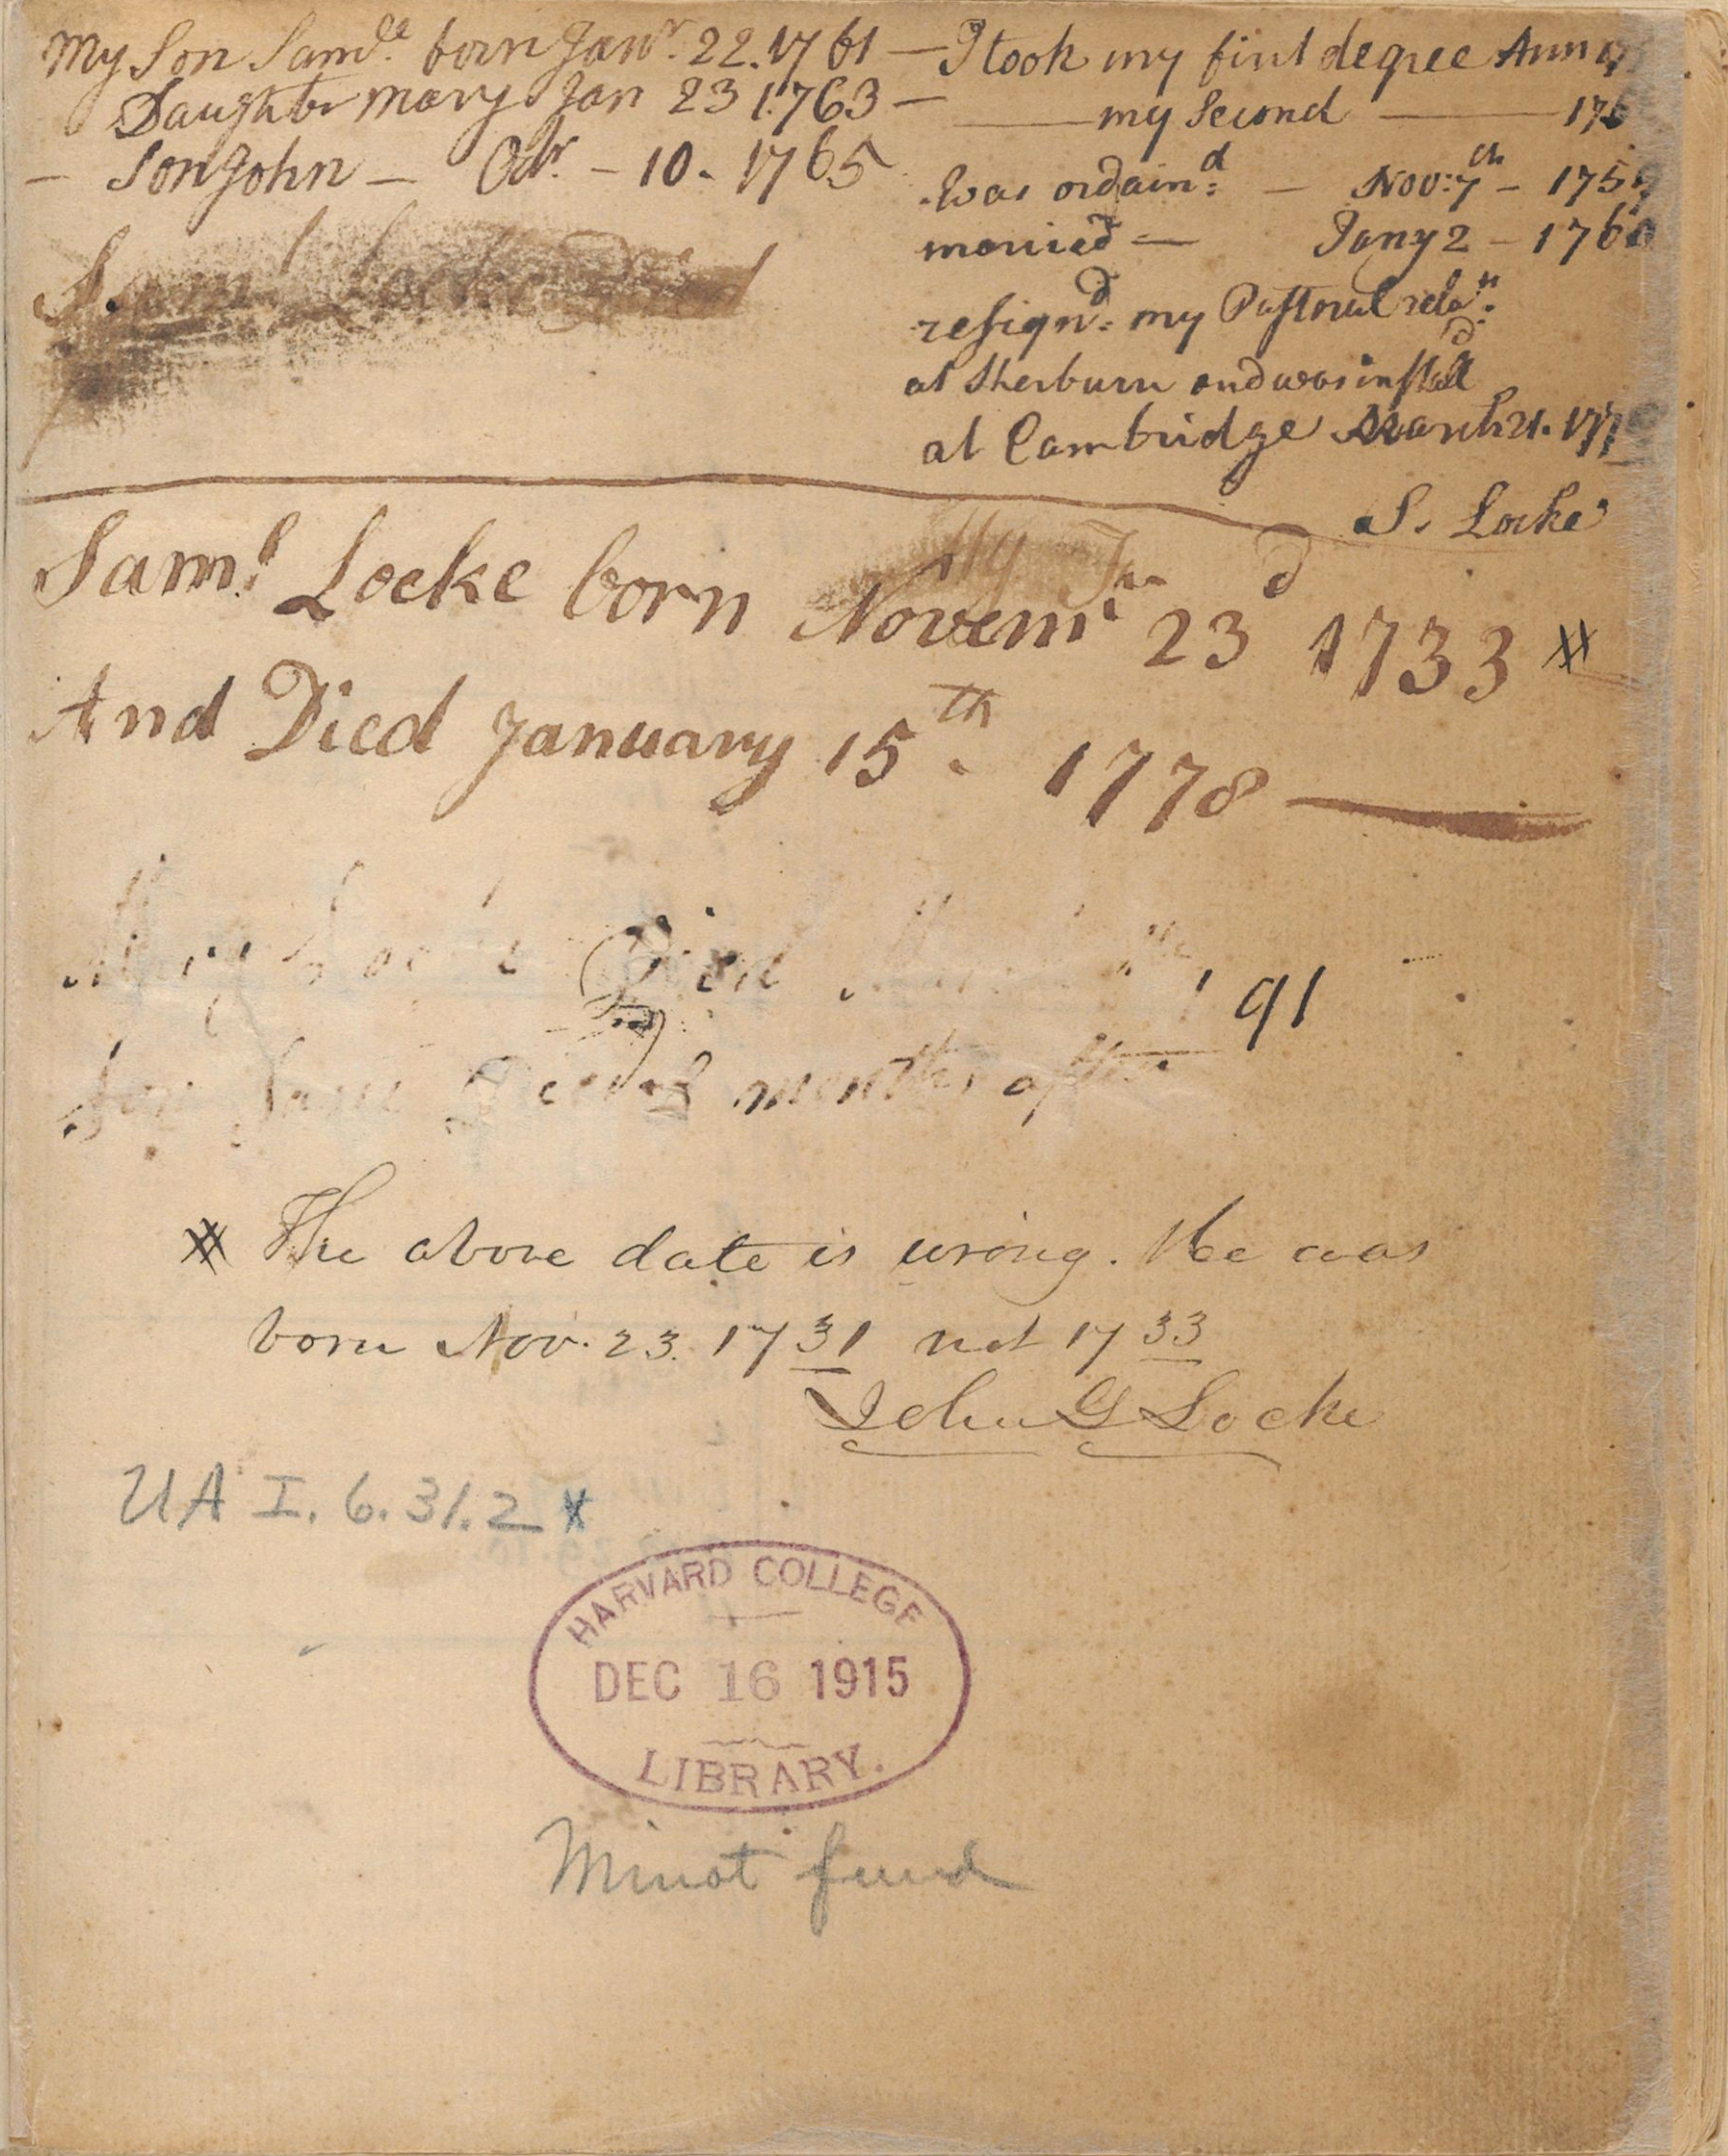 My Son Sam.ll born Janr. 22. 1761 —
Daughter Mary Jan 23 1763 —
— Son John — Octr. — 10. 1765
I took my first degree Ann
—— my Second ——
Was ordain:d — Nov: 7th — 1759
married — Jany 2 — 1760
resign:d my Pastoral rela:n
at Sherburn and was install'd
at Cambridge March 21. 177
S. Locke
Sam.l Locke Died
Sam.l Locke born Novemr 23d 1733 #
And Died January 15th. 1778
Mary Locke Died 91
Son Sam months after
# The above date is wrong. He was
born Nov. 23. 1731 not 1733
John G Locke
UA I. 6. 31. 2 *
HARVARD COLLEGE
DEC 16 1915
LIBRARY.
Minot fund